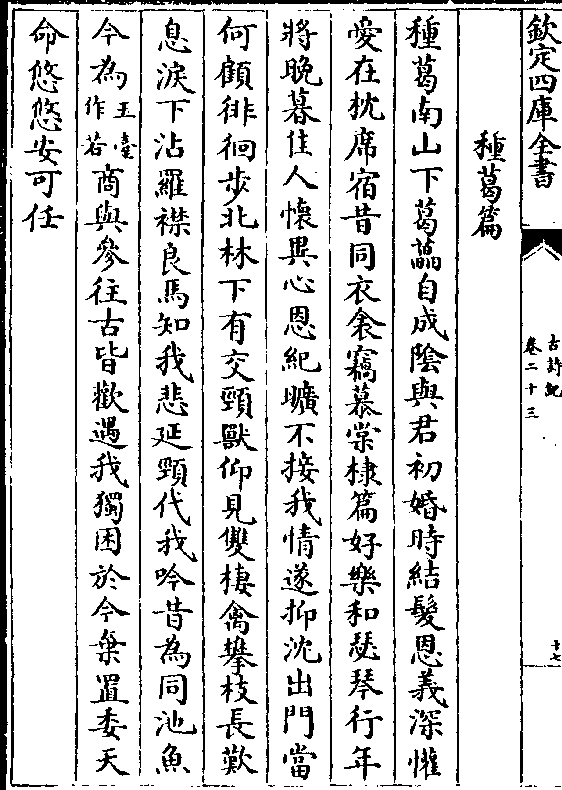 欽定四庫全書
古詩紀
卷二十三
十七
種葛篇
種葛南山下葛藟自成陰與君初婚時結髮恩義深懽
愛在枕席宿昔同衣衾竊慕棠棣篇好樂和瑟琴行年
將晚暮佳人懷異心恩紀曠不接我情遂抑沈出門當
何顧徘徊步北林下有交頸獸仰見雙棲禽攀枝長歎
息淚下沾羅襟良馬知我悲延頸代我吟昔為同池魚
今為玉臺作若商與參往古皆歡遇我獨困於今棄置委天
命悠悠安可任